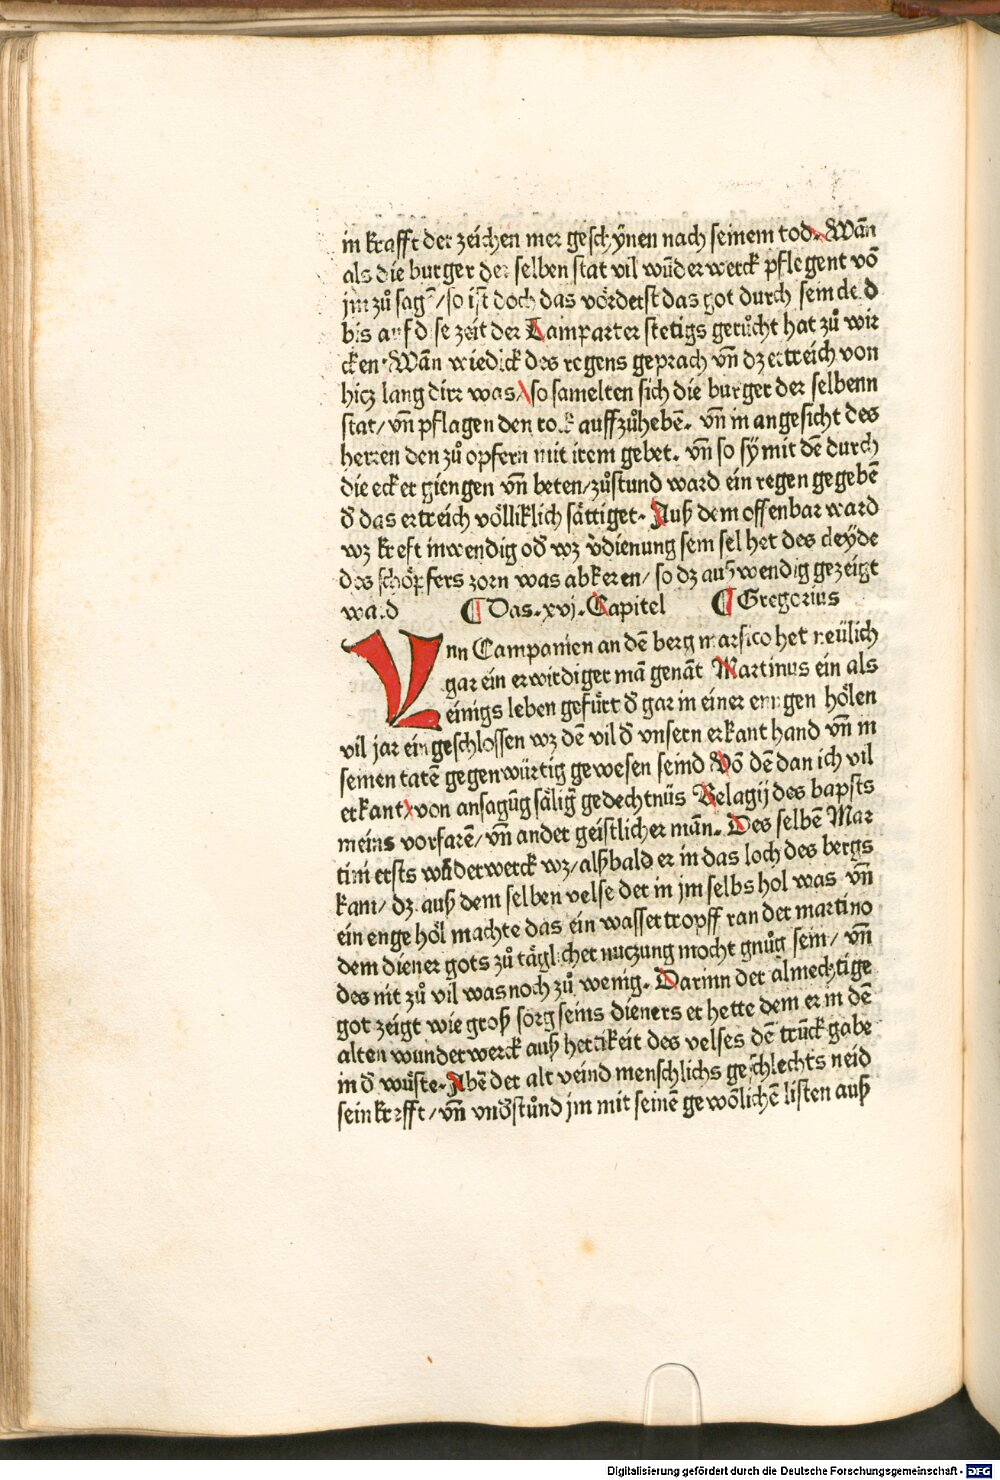 in krafft der zeichen mer geschÿnen nach seinem tod. Wān
als die burger der selben stat vil wūder werck pflegent vō
jm zů sagē/so ist doch das vörderst das got durch sein cleid
bis auf dise zeit der Lamparter stetigs gerůcht hat zů wir
cken. Wān wiedick des regens geprach vn̄ dz ertreich von
hicz lang dirr was/so samelten sich die burger der selbenn
stat/vn̄ pflagen den rock auffzůhebē. vn̄ in angesicht des
herren den zů opfern mit irem gebet. vn̄ so sÿ mit dē durch
die ecker giengen vn̄ beten/zůstund ward ein regen gegebē
d̄ das ertreich völliklich sättiget. Auß dem offenbar ward
wz kreft inwendig od̄ wz v̄dienung sein sel het des cleÿde
des schöpfers zorn was abkeren/so dz außwendig gezeigt
ward ¶ Das.xvj.Capitel ¶ Gregorius
Vnn Campanien an dē berg marsico het neülich
gar ein erwirdiger mā genāt Martinus ein als
einigs leben gefürt d̄ gar in einer enngen hölen
vil jar eingeschlossen wz dē vil d̄ vnsern erkant hand vn̄ in
seinen tatē gegenwürtig gewesen seind Vō dē dan ich vil
erkant/von ansagūg säligr̄ gedechtnüs Pelagij des bapsts
meins vorfarē/vn̄ ander geistlicher mān. Des selbē Mar
tini ersts wūderwerck wz/alßbald er in das loch des bergs
kam/dz auß dem selben velse der in jm selbs hol was vn̄
ein enge höl machte das ein wassertropff ran der martino
dem diener gots zů täglicher nuczung mocht gnůg sein/vn̄
des nit zů vil was noch zů wenig. Darinn der almechtige
got zeigt wie groß sorg seins dieners er hette dem er in dē
alten wunderwerck auß hertikeit des velses dē trūck gabe
in d̄ wůste. Abē der alt veind menschlichs geschlechts neid
sein krafft/vn̄ vnd̄stůnd jm mit seinē gewōlichē listen auß
Digitalisierung gefördert durch die Deutsche Forschungsgemeinschaft - DFG